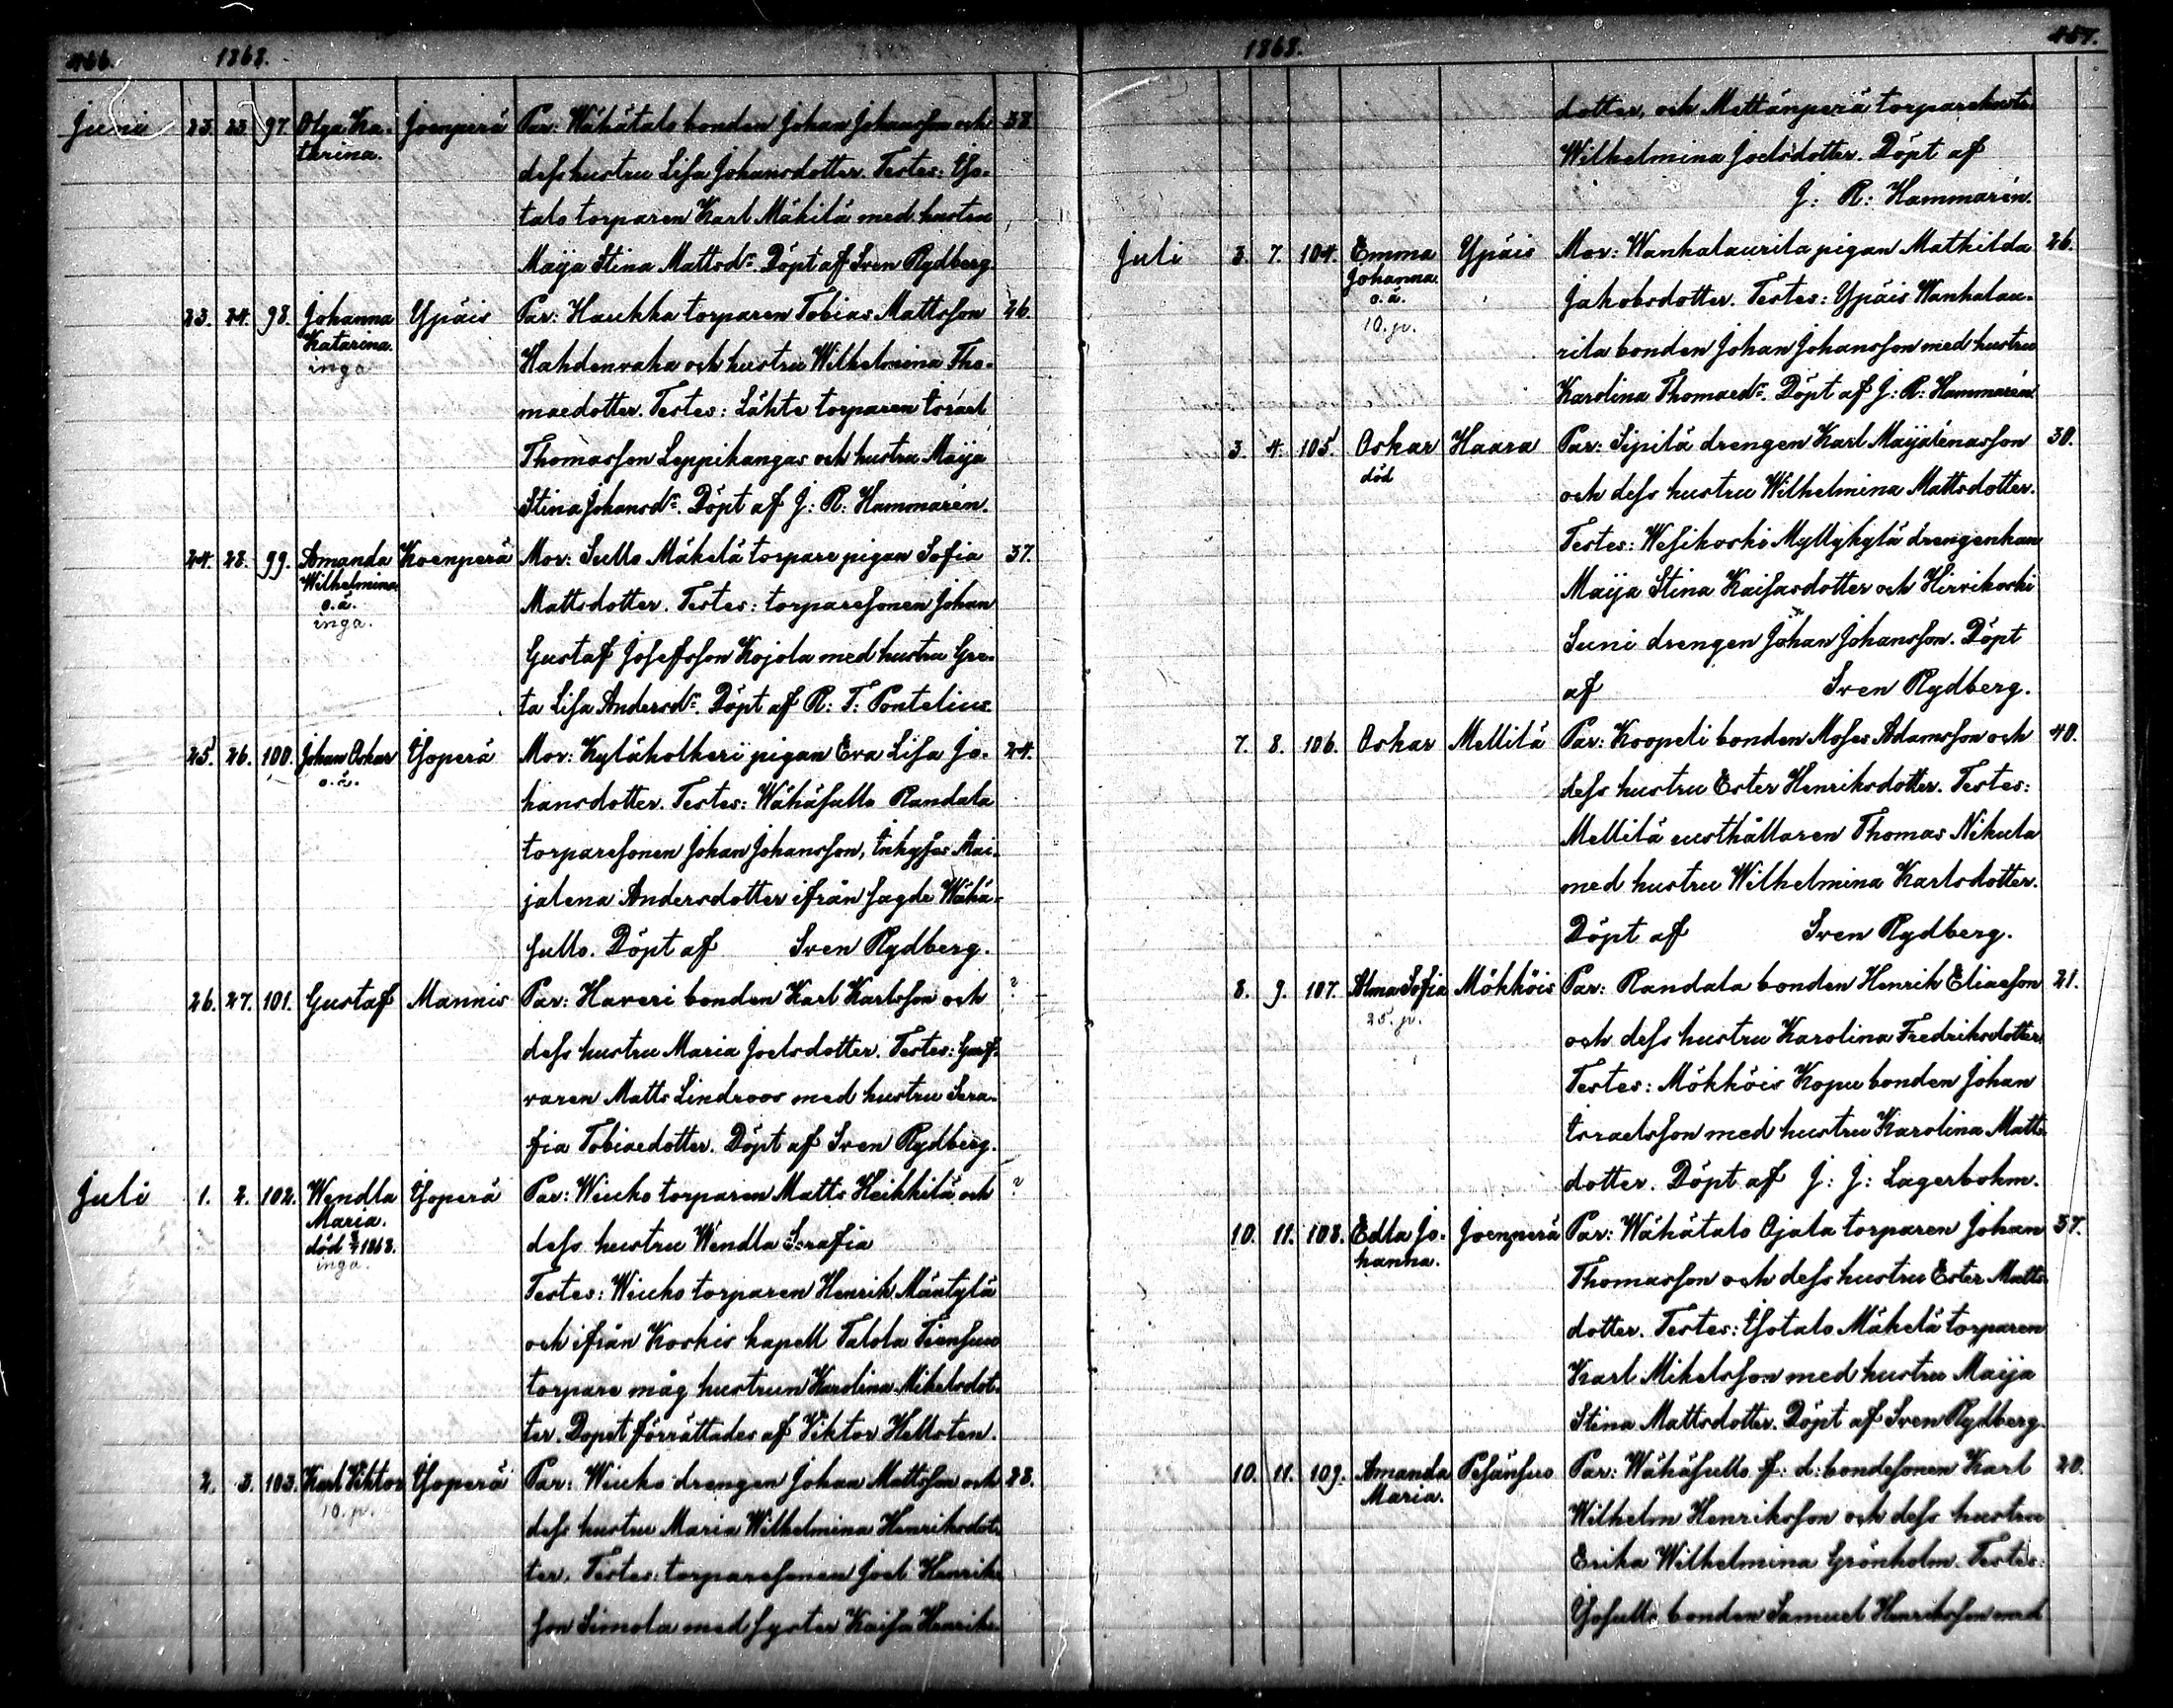 466. 1868.
Juni 23. 23. 97. Olga Ka- Joenperä Par: Wähätalo bonden Johan Johansson och 38.
tarina. dess hustru Lisa Johansdotter. Testes: Iso-
talo torparen Karl Mäkilä med hustru
Maija Stina Mattsdr. Döpt af Sven Rydberg.
23. 24. 98. Johanna Ypäis Par: Haukka torparen Tobias Mattsson 26.
Katarina. Kahdenvaha och hustru Wilhelmina Tho-
inga
maedotter. Testes: Lähte torparen Israel
Thomasson Leppikangas och hustru Maija
Stina Johansdr. Döpt af J: R: Hammarén.
24. 28. 99. Amanda Koenperä Mor: Sullo Mäkelä torpare pigan Sofia 37.
Wilhelmina
o.ä. Mattsdotter. Testes: torparesonen Johan
inga.
Gustaf Josefsson Kojola med hustru Gre-
ta Lisa Andersdr. Döpt af R: T: Pontelius
25. 26. 100. Johan Oskar Isoperä Mor: Kyläholkeri pigan Eva Lisa Jo- 24.
o.ä. hansdotter. Testes: Wähäsullo Randala
torparesonen Johan Johansson, Inhyses Mai-
jalena Andersdotter ifrån sagde Wähä-
sullo. Döpt af Sven Rydberg.
26. 27. 101. Gustaf Mannis Par: Haveri bonden Karl Karlsson och ?
dess hustru Maria Joelsdotter. Testes: Garf-
varen Matts Lindroos med hustru Sera-
fia Tobiaedotter. Döpt af Sven Rydberg.
Juli 1. 2. 102. Wendla Isoperä Par: Wiuko torparen Matts Heikkilä och ?
Maria.
död 1868. dess hustru Wendla Serafia
inga.
Testes: Wiuko torparen Henrik Mäntylä
och ifrån Koskis kapell Talola Tiensuu
torpare måg hustrun Karolina Mikelsdot-
ter. Dopet förrättades af Viktor Hellsten.
2. 3. 103. Karl Viktor Isoperä Par: Wiuko drengen Johan Mattsson och 28.
10. p. dess hustru Maria Wilhelmina Henriksdot-
ter. Testes: torparesonen Joel Henriks-
son Simola med syster Kaisa Henriks-
1868. 467.
dotter, och Mettänperä torparehustr.
Wilhelmina Joelsdotter. Döpt af
J: R: Hammarén.
Juli 3. 7. 104. Emma Ypäis Mor: Wanhalaurila pigan Mathilda 26.
Johanna
o.ä. Jakobsdotter. Testes: Ypäis Wanhalau-
10. p.
rila bonden Johan Johansson med hustru
Karolina Thomaedr. Döpt af J: R: Hammarén.
3. 4. 105. Oskar Haara Par: Sipilä drengen Karl Maijalenasson 30.
död och dess hustru Wilhelmina Mattsdotter.
Testes: Wesikoski Myllykylä drengenhun
Maija Stina Kaisasdotter och Hirvikoski
Suni drengen Johan Johansson. Döpt
af Sven Rydberg.
7. 8. 106. Oskar Mellilä Par: Koopeli bonden Moses Adamsson och 40.
dess hustru Ester Henriksdotter. Testes:
Mellilä rusthållaren Thomas Nikula
med hustru Wilhelmina Karlsdotter.
Döpt af Sven Rydberg.
8. 9. 107. Alma Sofia Mökköis Par: Randala bonden Henrik Eliasson 21.
25. p. och dess hustru Karolina Fredriksdotter
Testes: Mökköis Kopu bonden Johan
Israelsson med hustru Karolina Matts-
dotter. Döpt af J: J: Lagerbohm.
10. 11. 108. Edla Jo- Joenperä Par: Wähätalo Ojala torparen Johan 37.
hanna. Thomasson och dess hustru Ester Matts-
dotter. Testes: Isotalo Mäkelä torparen
Karl Mikelsson med hustru Maija
Stina Mattsdotter. Döpt af Sven Rydberg.
10. 11. 109. Amanda Pesänsuo Par: Wähäsullo f: d: bondesonen Karl 20.
Maria. Wilhelm Henriksson och dess hustru
Erika Wilhelmina Grönholm. Testes:
Isosullo bonden Samuel Henriksson med